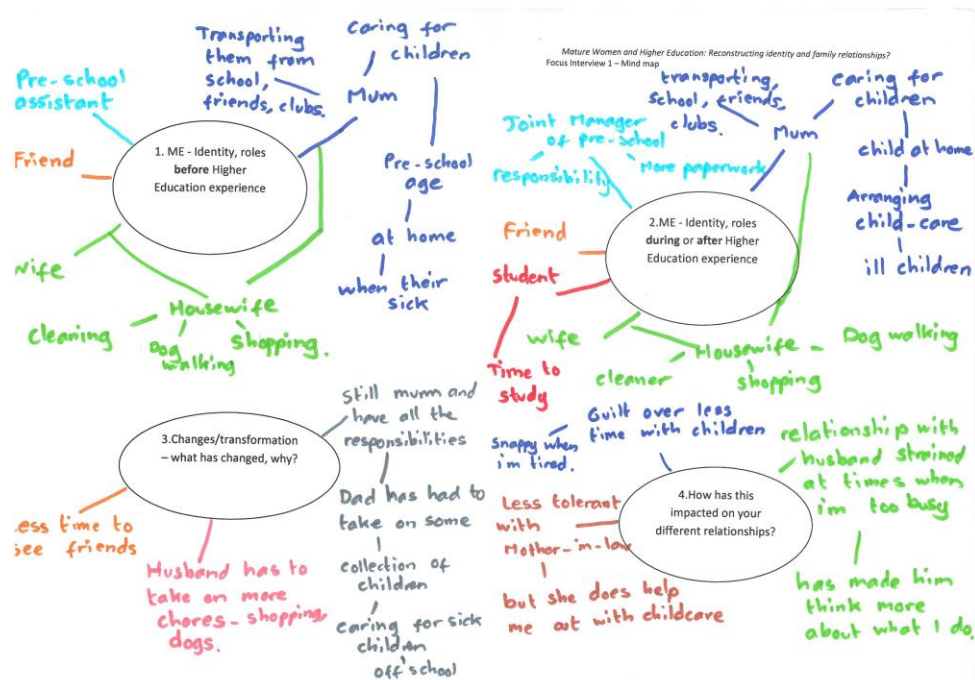 Mature Women and Higher Education: Reconstructing identity and family relationships?
Focus Interview 1 – Mind map
1. ME - Identity, roles
before Higher
Education experience
Pre-school
assistant
Friend
Wife
Housewife
cleaning
Dog
walking
shopping.
Transporting
them from
school,
friends, clubs.
Mum
caring for
children
Pre-school
age
at home
when their
sick
2.ME - Identity, roles
during or after Higher
Education experience
Joint Manager
of pre-school
responsibility
More paperwork
Friend
Student
Time to
study
wife
Housewife
cleaner
shopping
Dog walking
transporting,
school, friends,
clubs.
Mum
caring for
children
child at home
Arranging
child-care
ill children
3.Changes/transformation
– what has changed, why?
Less time to
see friends
Husband has to
take on more
chores - shopping,
dogs.
Still mum and
have all the
responsibilities
Dad has had to
take on some
collection of
children
caring for sick
children
off school
4.How has this
impacted on your
different relationships?
Guilt over less
time with children
Snappy when
i'm tired.
Less tolerant
with
Mother-in-law
but she does help
me out with childcare
relationship with
husband strained
at times when
i'm too busy
has made him
think more
about what I do.